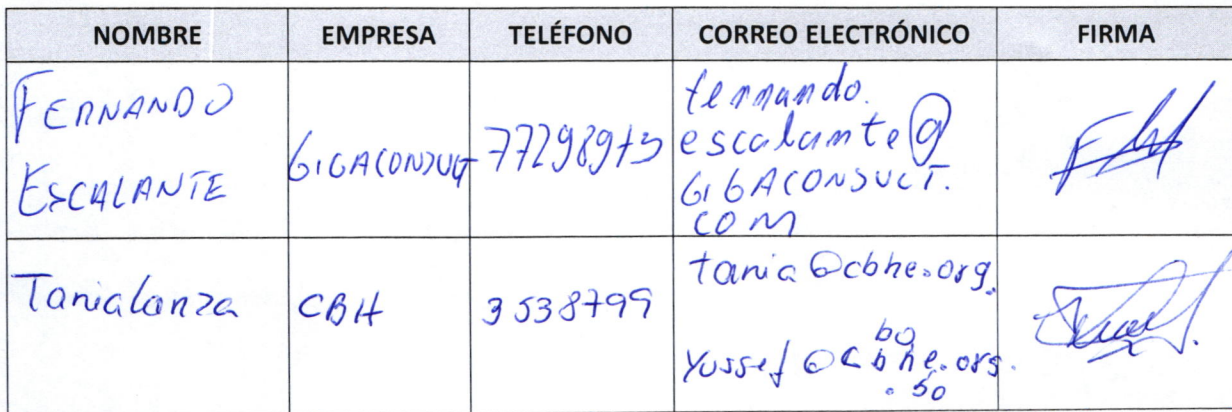 NOMBRE EMPRESA TELÉFONO CORREO ELECTRÓNICO FIRMA
FERNANDO
ESCALANTE
GIGACONSULT
77298973
fernando.
escalante@
GIGACONSULT.
COM
Tania Lanza
CBH
3538799
tania@cbhe.org.
bo
yussef@cbhe.org.
.bo